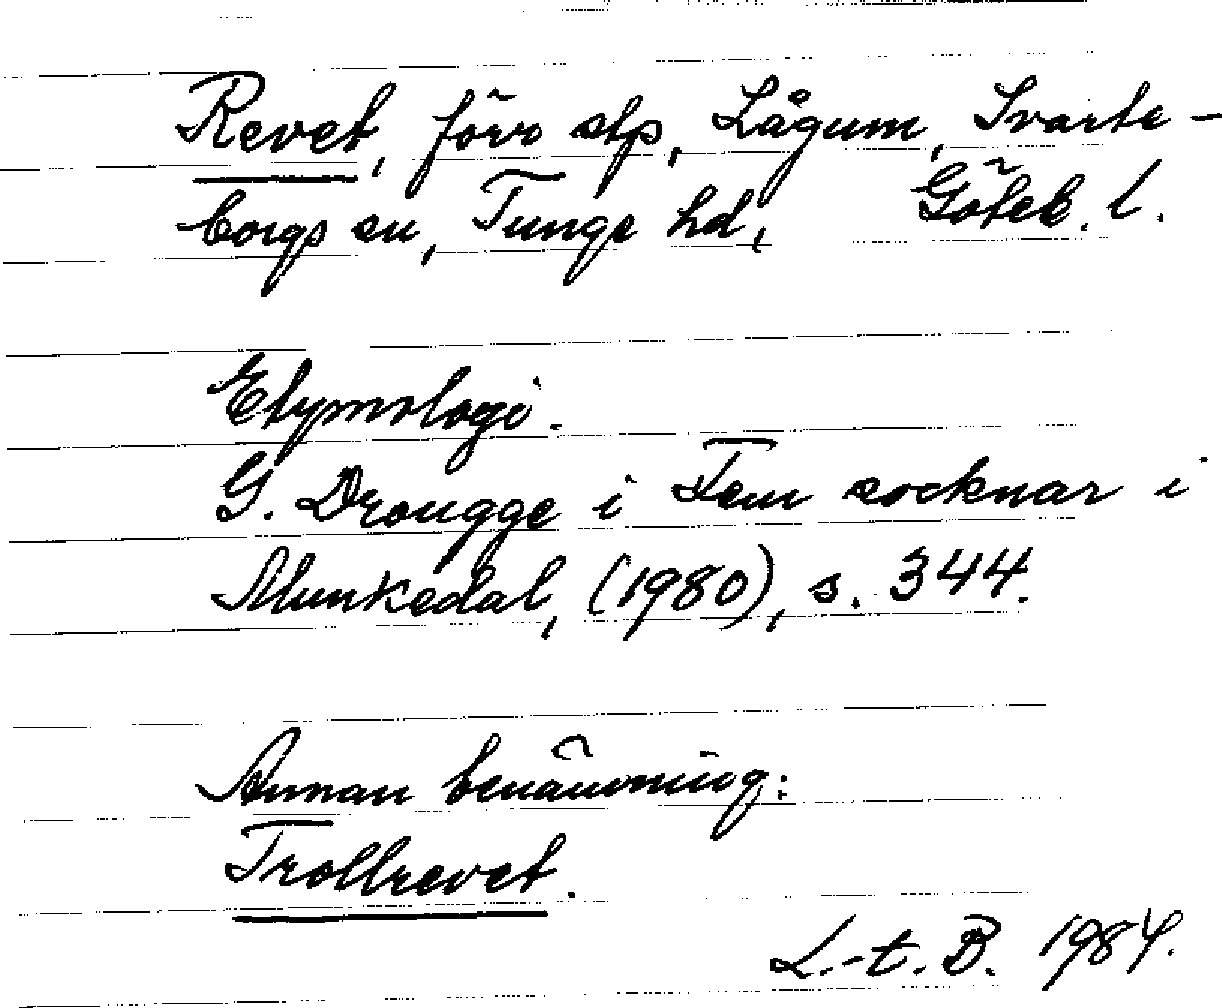 Revet, förr stp, Lågum, Svarte-
borgs sn, Tunge hd, Göteb. l.
Etymologi.
G. Drougge i Fem socknar i
Munkedal, (1980), s. 344.
Annan benämning:
Trollrevet.
L.-t. B. 1984.